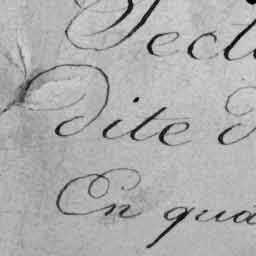 Sect
dite d
En qua